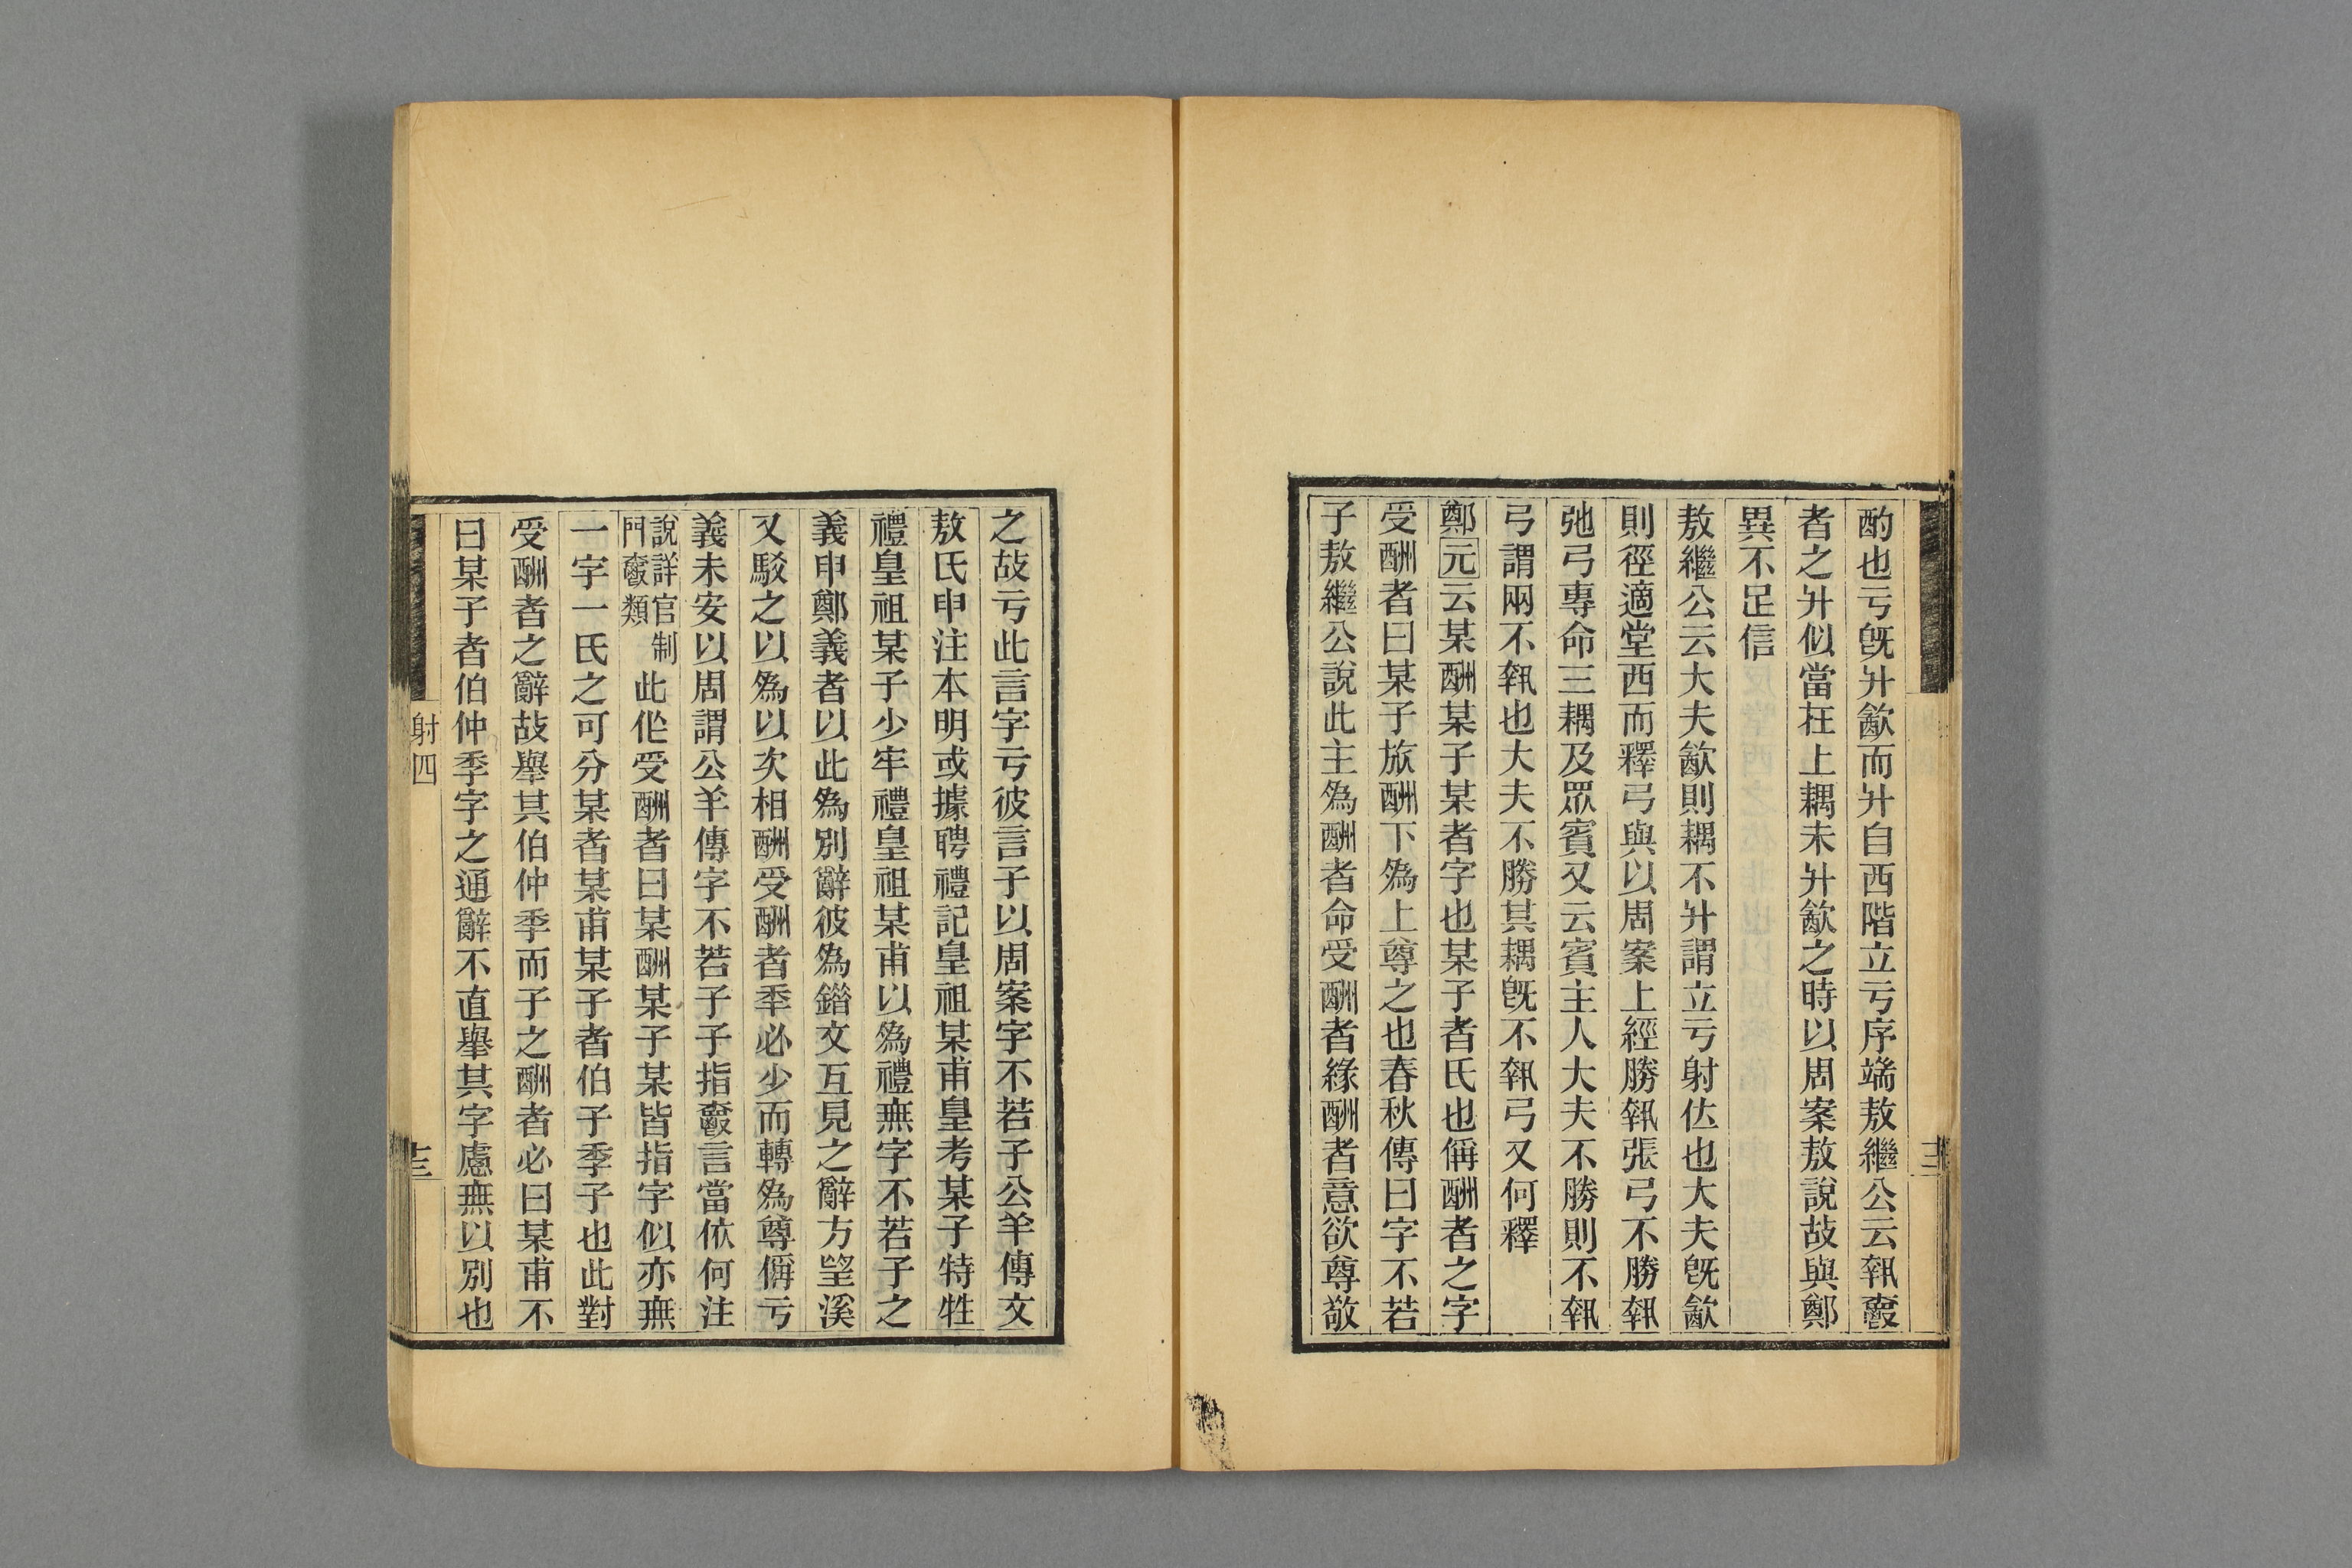 酌也亏旣升歙而升自西階立亏序端敖繼公云執爵
者之升似當在上耦未升歙之時以周案敖說故與鄭
異不足信
敖繼公云大夫歙則耦不升謂立亏射位也大夫旣歙
則徑適堂西而釋弓與以周案上經勝執張弓不勝執
弛弓專命三耦及眾賓又云賓主人大夫不勝則不執
弓謂兩不執也大夫不勝其耦旣不執弓又何釋
鄭元云某酬某子某者字也某子者氏也偁酬者之字
受酬者曰某子旅酬下爲上尊之也春秋傳曰字不若
子敖繼公說此主爲酬者命受酬者緣酬者意欲尊敬
之故亏此言字亏彼言子以周案字不若子公羊傳文
敖氏申注本明或據聘禮記皇祖某甫皇考某子特牲
禮皇祖某子少牢禮皇祖某甫以爲禮無字不若子之
義申鄭義者以此爲別辭彼爲錯文互見之辭方望溪
又駁之以爲以次相酬受酬者年必少而轉爲尊偁亏
義未安以周謂公羊傳字不若子子指爵言當依何注
說詳官制門爵類此作受酬者曰某酬某子某皆指字似亦無
一字一氏之可分某者某甫某子者伯子季子也此對
受酬者之辭故舉其伯仲季而子之酬者必曰某甫不
曰某子者伯仲季字之通辭不直舉其字慮無以別也
射四
十三